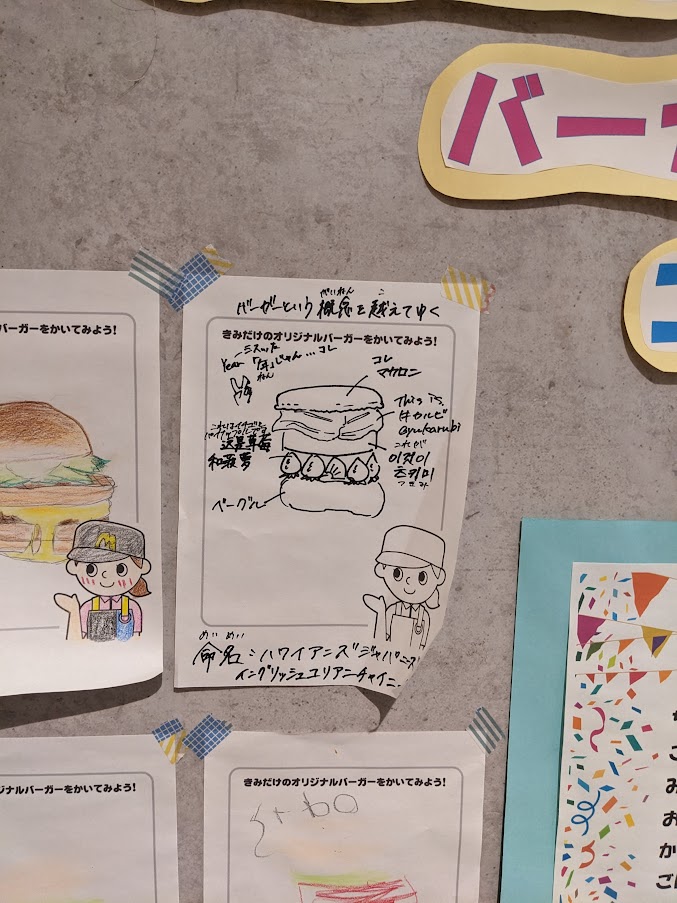 バー
バーガーをかいてみよう!
がいねん
バーガーという概念を越えてゆく
きみだけのオリジナルバーガーをかいてみよう!
ミスった
Year 「年」じゃん…コレ
ねん
コレ
マカロン
This is.
牛カルビ
Gyukarubi
これはイチゴと
パイナップルです
草莓
和菠萝
これが
이치이
츠키미
つきみ
ベーグル
めいめい
命名:ハワイアンズジャパニーズ
イングリッシュコリアンチャイニ
ジナルバーガーをかいてみよう!
きみだけのオリジナルバーガーをかいてみよう!
こ
み
お
か
ご